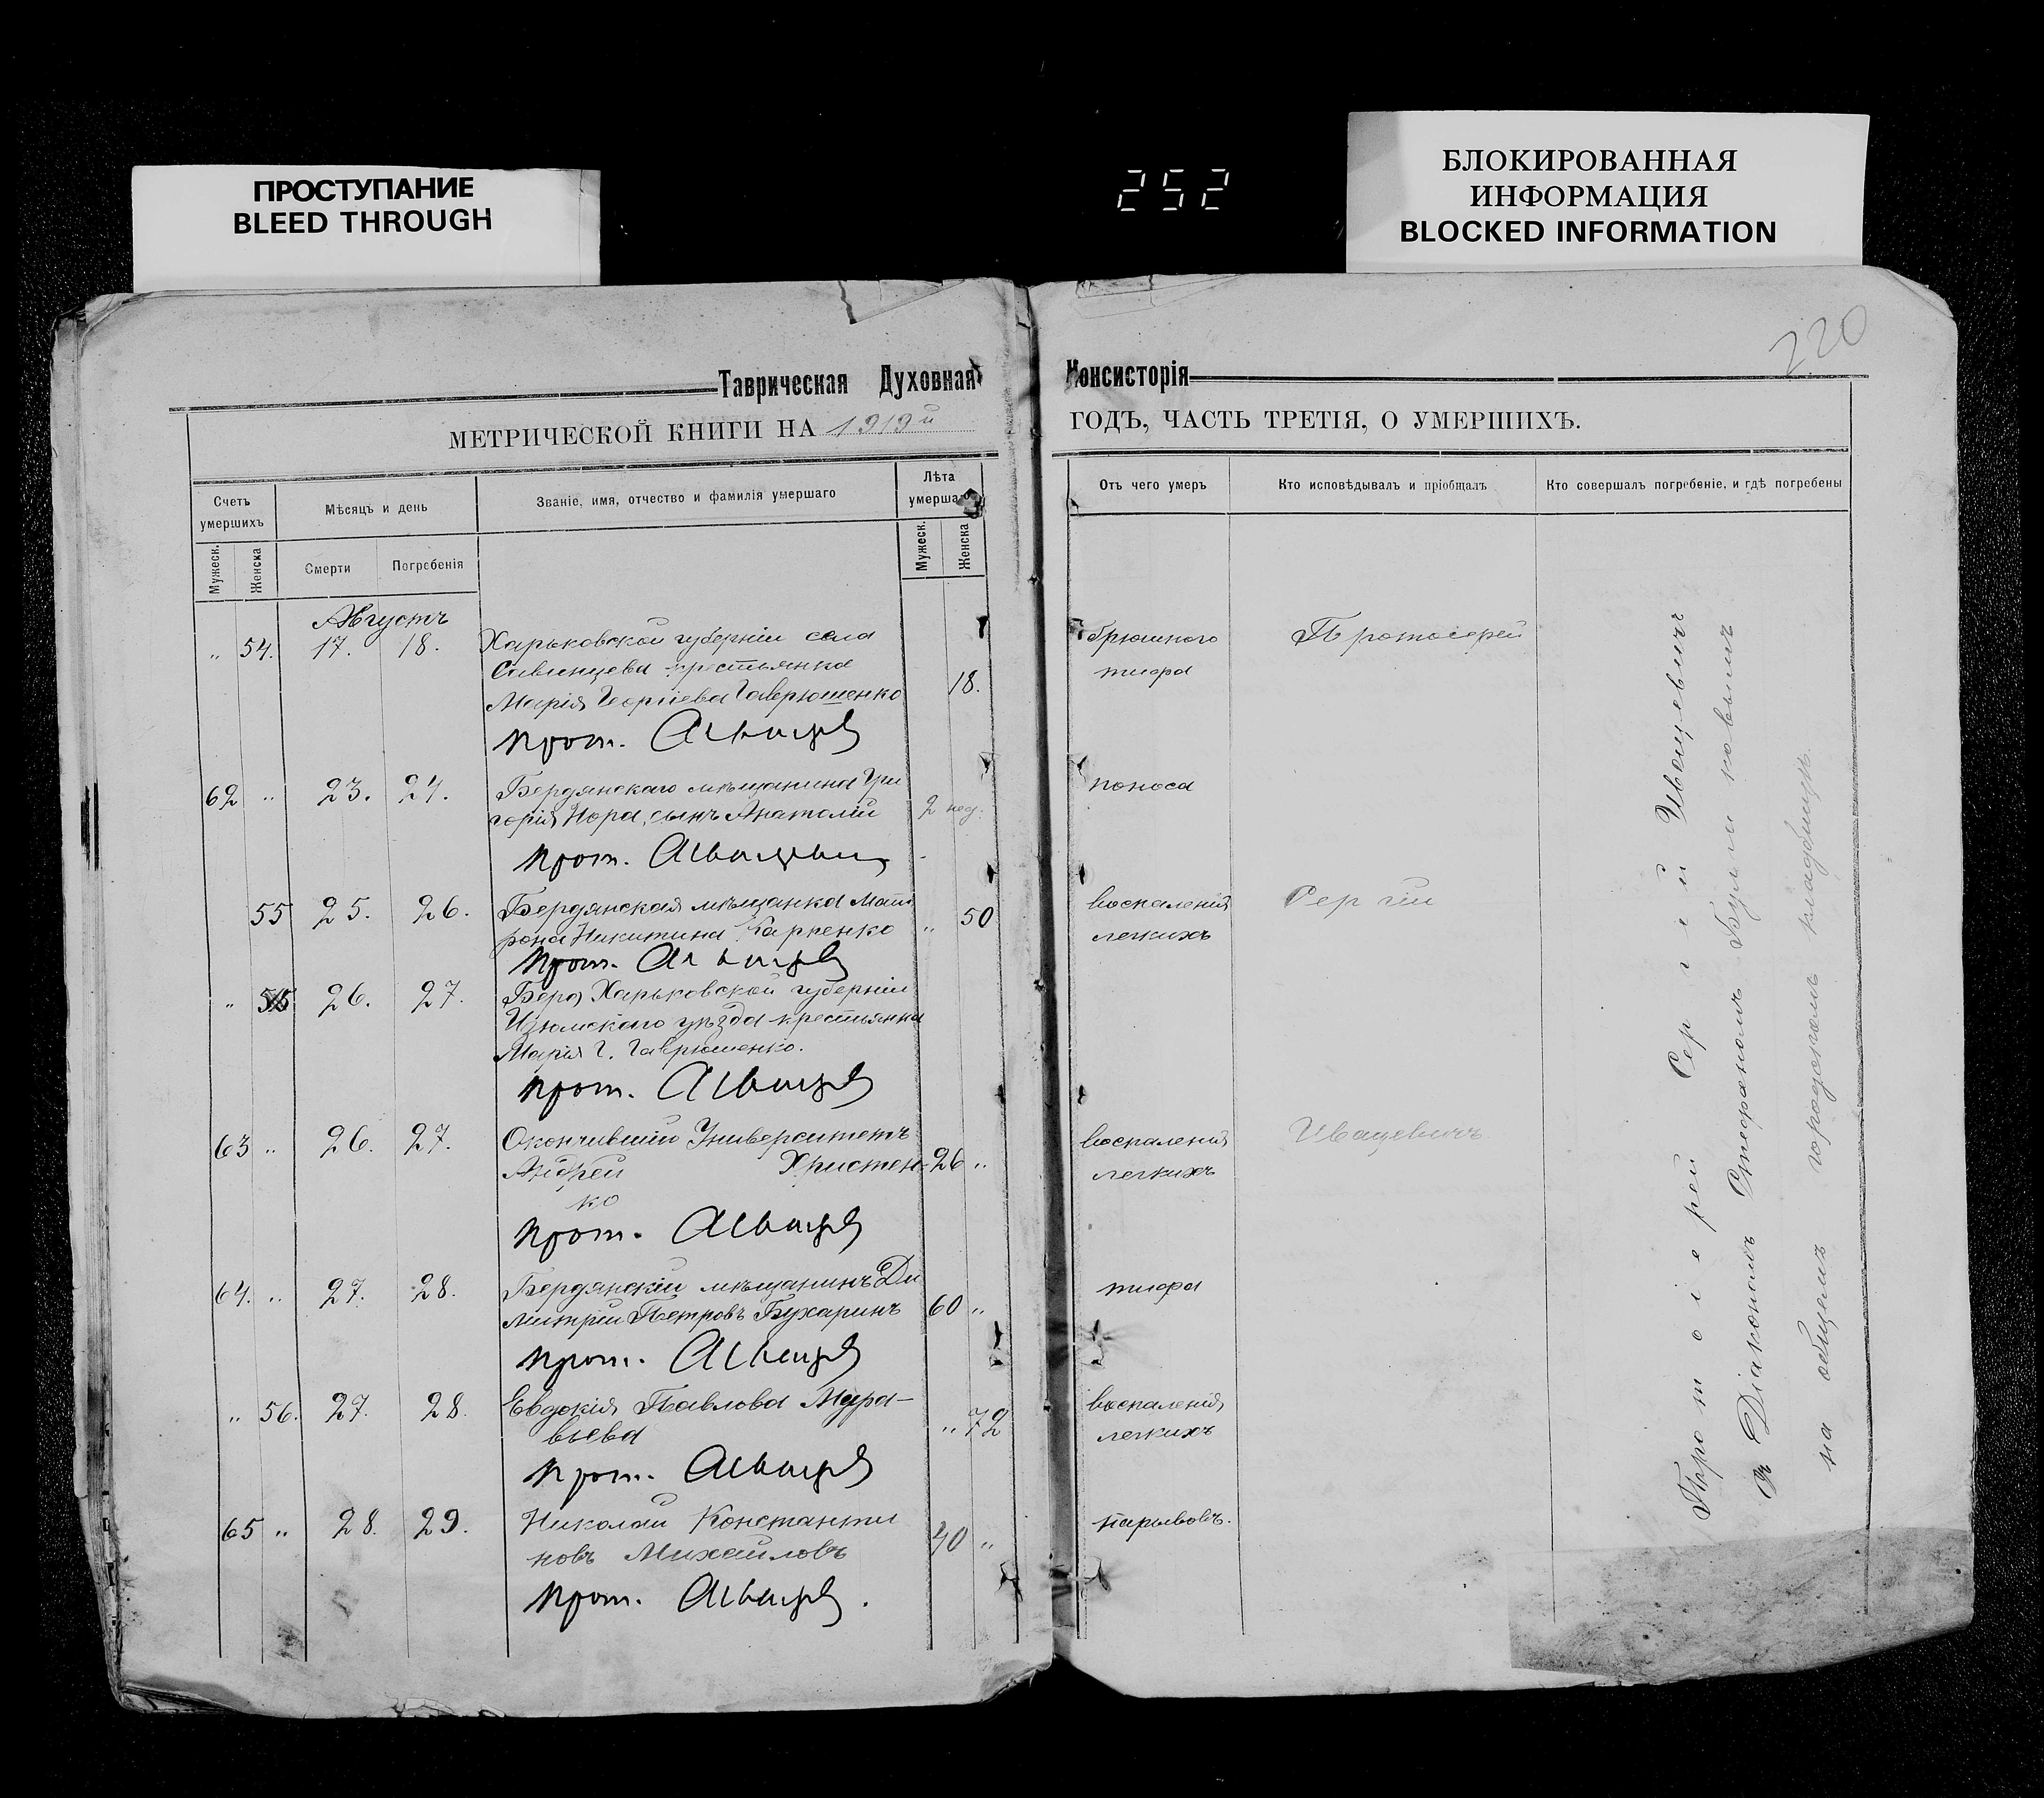 ПРОСТУПАНИЕ
BLEED THROUGH
252
БЛОКИРОВАННАЯ
ИНФОРМАЦИЯ
BLOCKED INFORMATION
220
Таврическая Духовная Консисторія
МЕТРИЧЕСКОЙ КНИГИ НА 1919й ГОДЪ, ЧАСТЬ ТРЕТІЯ, О УМЕРШИХЪ.
Счетъ умершихъ
Мѣсяцъ и день
Званіе, имя, отчество и фамилія умершаго
Лѣта умершаго
Отъ чего умеръ
Кто исповѣдывалъ и пріобщалъ
Кто совершалъ погребеніе, и гдѣ погребены
Мужеск.
Женска
Смерти
Погребенія
Мужеск.
Женска
Августъ
" 54. 17. 18. Харьковской губерніи села
крестьянка
Марія Георгіева Гаврюшенко 18.
брюшного
тифа
Протоіерей
прот.
62 " 23. 24. Бердянскаго мѣщанина Гри
горія Нора, сынъ Анатолій 2 нед.
поноса
прот.
55 25. 26. Бердянская мѣщанка Мат
рона Никитина Карпенко " 50
воспаленія
легкихъ
Сергій
прот.
" 55 26. 27. Харьковской губерніи
Изюмского уѣзда крестьянка
Марія Г. Гаврюшенко.
прот.
63 " 26. 27. Окончившій Университетъ
Андрей Христен- 26 "
ко
воспаленія
легкихъ
Иващевичъ
прот.
64. " 27. 28. Бердянскій мѣщанинъ Ди
митрій Петровъ Бухаринъ 60 "
тифа
прот.
" 56. 27. 28. Евдокія Павлова Мура-
вьева " 72
воспаленія
легкихъ
прот.
65 " 28. 29. Николай Константи
новъ Михайловъ 40 "
нарывовъ.
прот.
Протоіерей Сергій Иващевичъ
Діакономъ Стефаномъ
на общемъ городскомъ кладбищѣ.